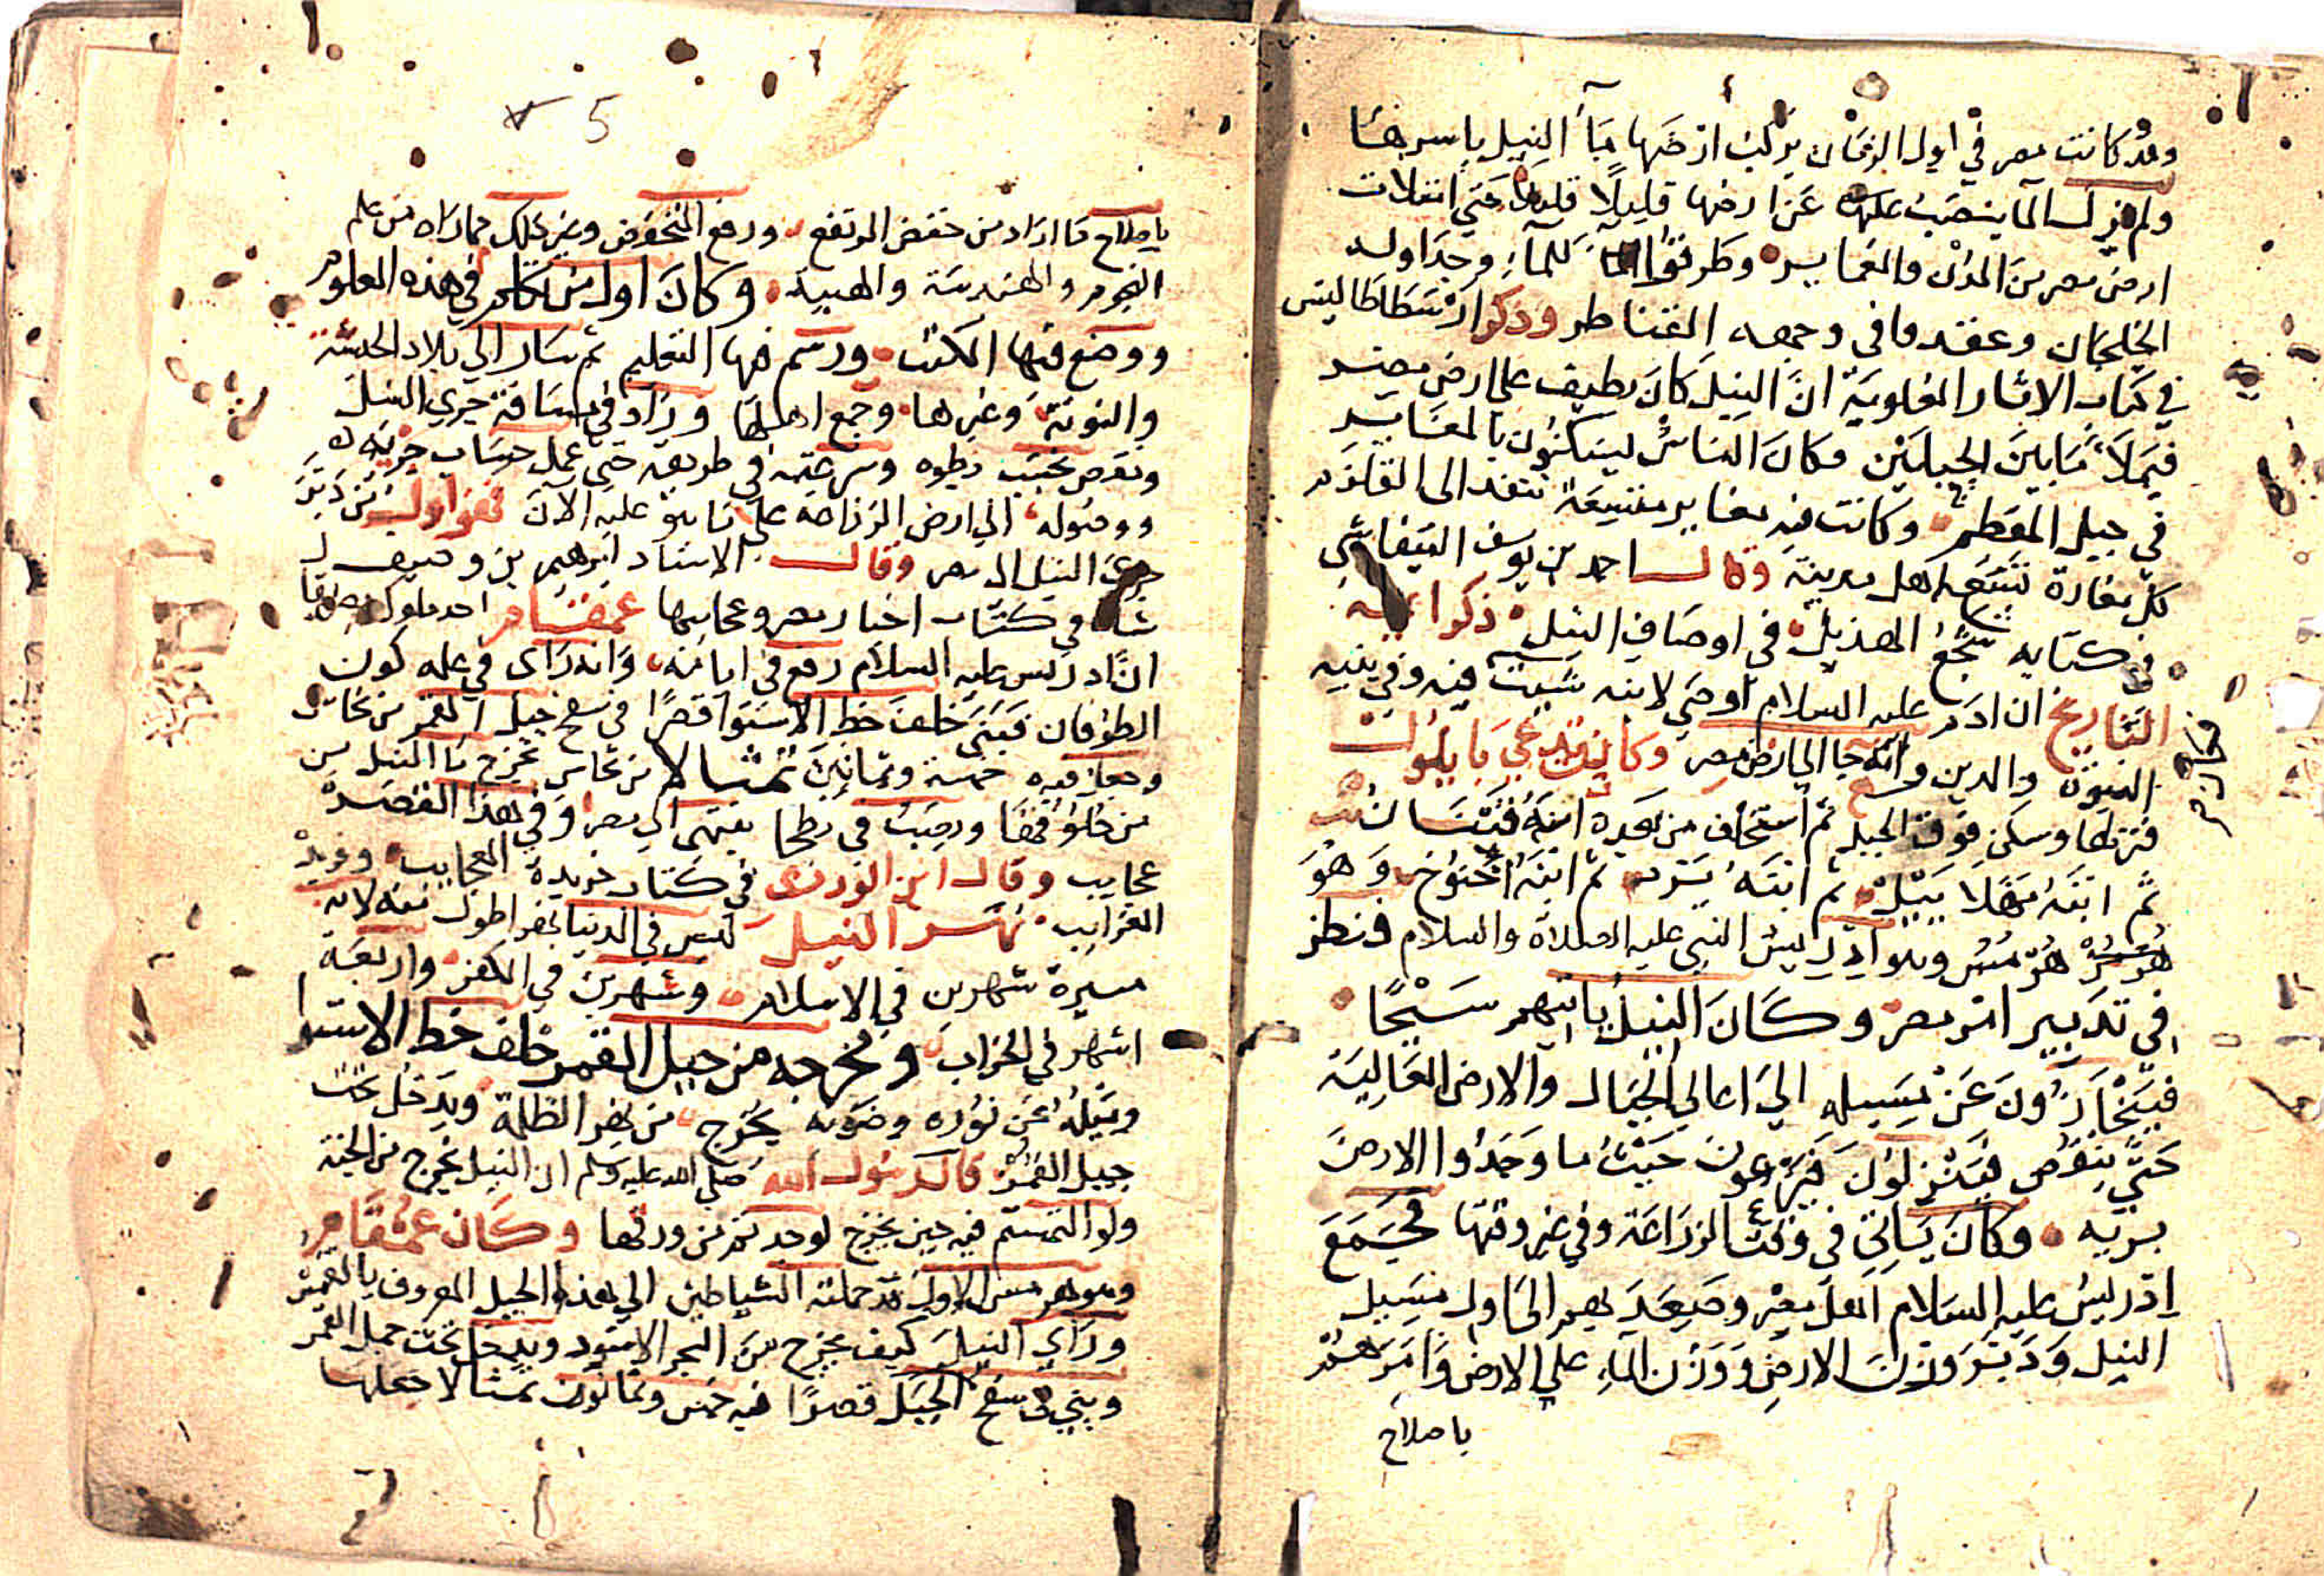 وقد كانت مصر في اول الزمان يركب ارضها مآ النيل باسرها
ولم يزل المآ ينصب عنها عن ارضها قليلًا قليلا حتي امتلات
ارض مصر من المدن والعمايـر وطرقوا المآ للمآء وجداوله
الخلجان وعقد وما في وجمعه القناطر وذكر ارسطاطاليس
في كتاب الاثار العلوية انّ النيل كان يطيف علي ارض مصر
فيملأ ما بين الجبلين وكان الناس ليسكنون بالمغاير
في جبل المقطم وكانت فيه مغاير متسعة تنفد الى القلزم
كل مغارة تسع اهل مدينة وقال احمد بن يوسف التيفاشي
في كتابه سجع الهديل في اوصاف النيل ذكر ائمة
التاريخ ان ادم عليه السلام اوصَي لابنه شيث فيه وفي بنيه
النبوّة والدين وانه جا الي ارض مصر وكانت تدعي بابلون
فنزلها وسكن فوق الجبل ثم استخلف من بعده ابنه قينان
ثم ابنه مهلابيل ثم ابنه يرد ثم ابنه اخنوخ وهو
هرمس وهو ادريس النبي عليه الصلاة والسلام فنظر
في تدبير امر مصر وكان النيل ياتيهم سَيْحًا
فينحازون عن مسيله الي اعالي الجبال والارض العالية
حتي ينقص فينزلون فيزرعون حيث ما وجدوا الارض
بريه وكان ياتي في وقت الزراعة وفي غير وقتها فجمع
ادريس عليه السلام اهل مصر وصعد بهم الي اول مسيل
النيل ودبر وزن الارض ووزن المآء علي الارض وامرهم
باصلاح
5
باصلاح ما اراد من خفض المرتفع ورفع المنخفض وغير ذلك مما راه من علم
النجوم والهندسة والهيية وكان اول من تكلم في هذه العلوم
ووضع فيها الكتب ورسم فيها التعليم ثم سار الي بلاد الحبشة
والنوبة وغيرها وجمع اهلها وزاد في مسافة جري النيل
ونقص بحسب بطوه وسرعته في طريقه حتي عمل حساب جريه
ووصوله الي ارض الزراعة علي ما هو عليه الآن فهو اول من دبر
جري النيل الى مصر وقال الاستاد ابرهيم بن وصيف
شاه في كتاب اخبار مصر وعجايبها عمقام احد ملوك مصر
انّ ادريس عليه السلام رفع في ايامه وانه راى في علمه كون
الطوفان فبنى خلف خط الاستوا قصرًا في سفح جبل القمر من نحاس
وجعل فيه خمسة وثمانين تمثالا من نحاس يخرج ما النيل من
حلوقها ويصب في بطحا ينتهى الى مصر وفي هذا القصر
عجايب وقال ابن الوردى في كتاب خريدة العجايب وفريدة
الغرايب نهر النيل ليس في الدنيا نهر اطول منه لانه
مسيرة شهرين في الاسلام وشهرين في الكفر واربعة
اشهر في الخراب ومخرجه من جبل القمر خلف خط الاستوا
يخرج من بحر الظلمة ويدخل تحت
جبل القمر قال رسول الله صلي الله عليه وسلم ان النيل يخرج من الجنة
ولو التمستم فيه حين يخرج لوجدتم من ورقها وكان عمقام
وهو هرمس الاول قد حملته الشياطين الي هذا الجبل المعروف بالقمر
وراي النيل كيف يخرج من البحر الاسود ويدخل تحت جبل القمر
وبني في سفح الجبل قصرًا فيه خمس وثمانون تمثالا جعلها